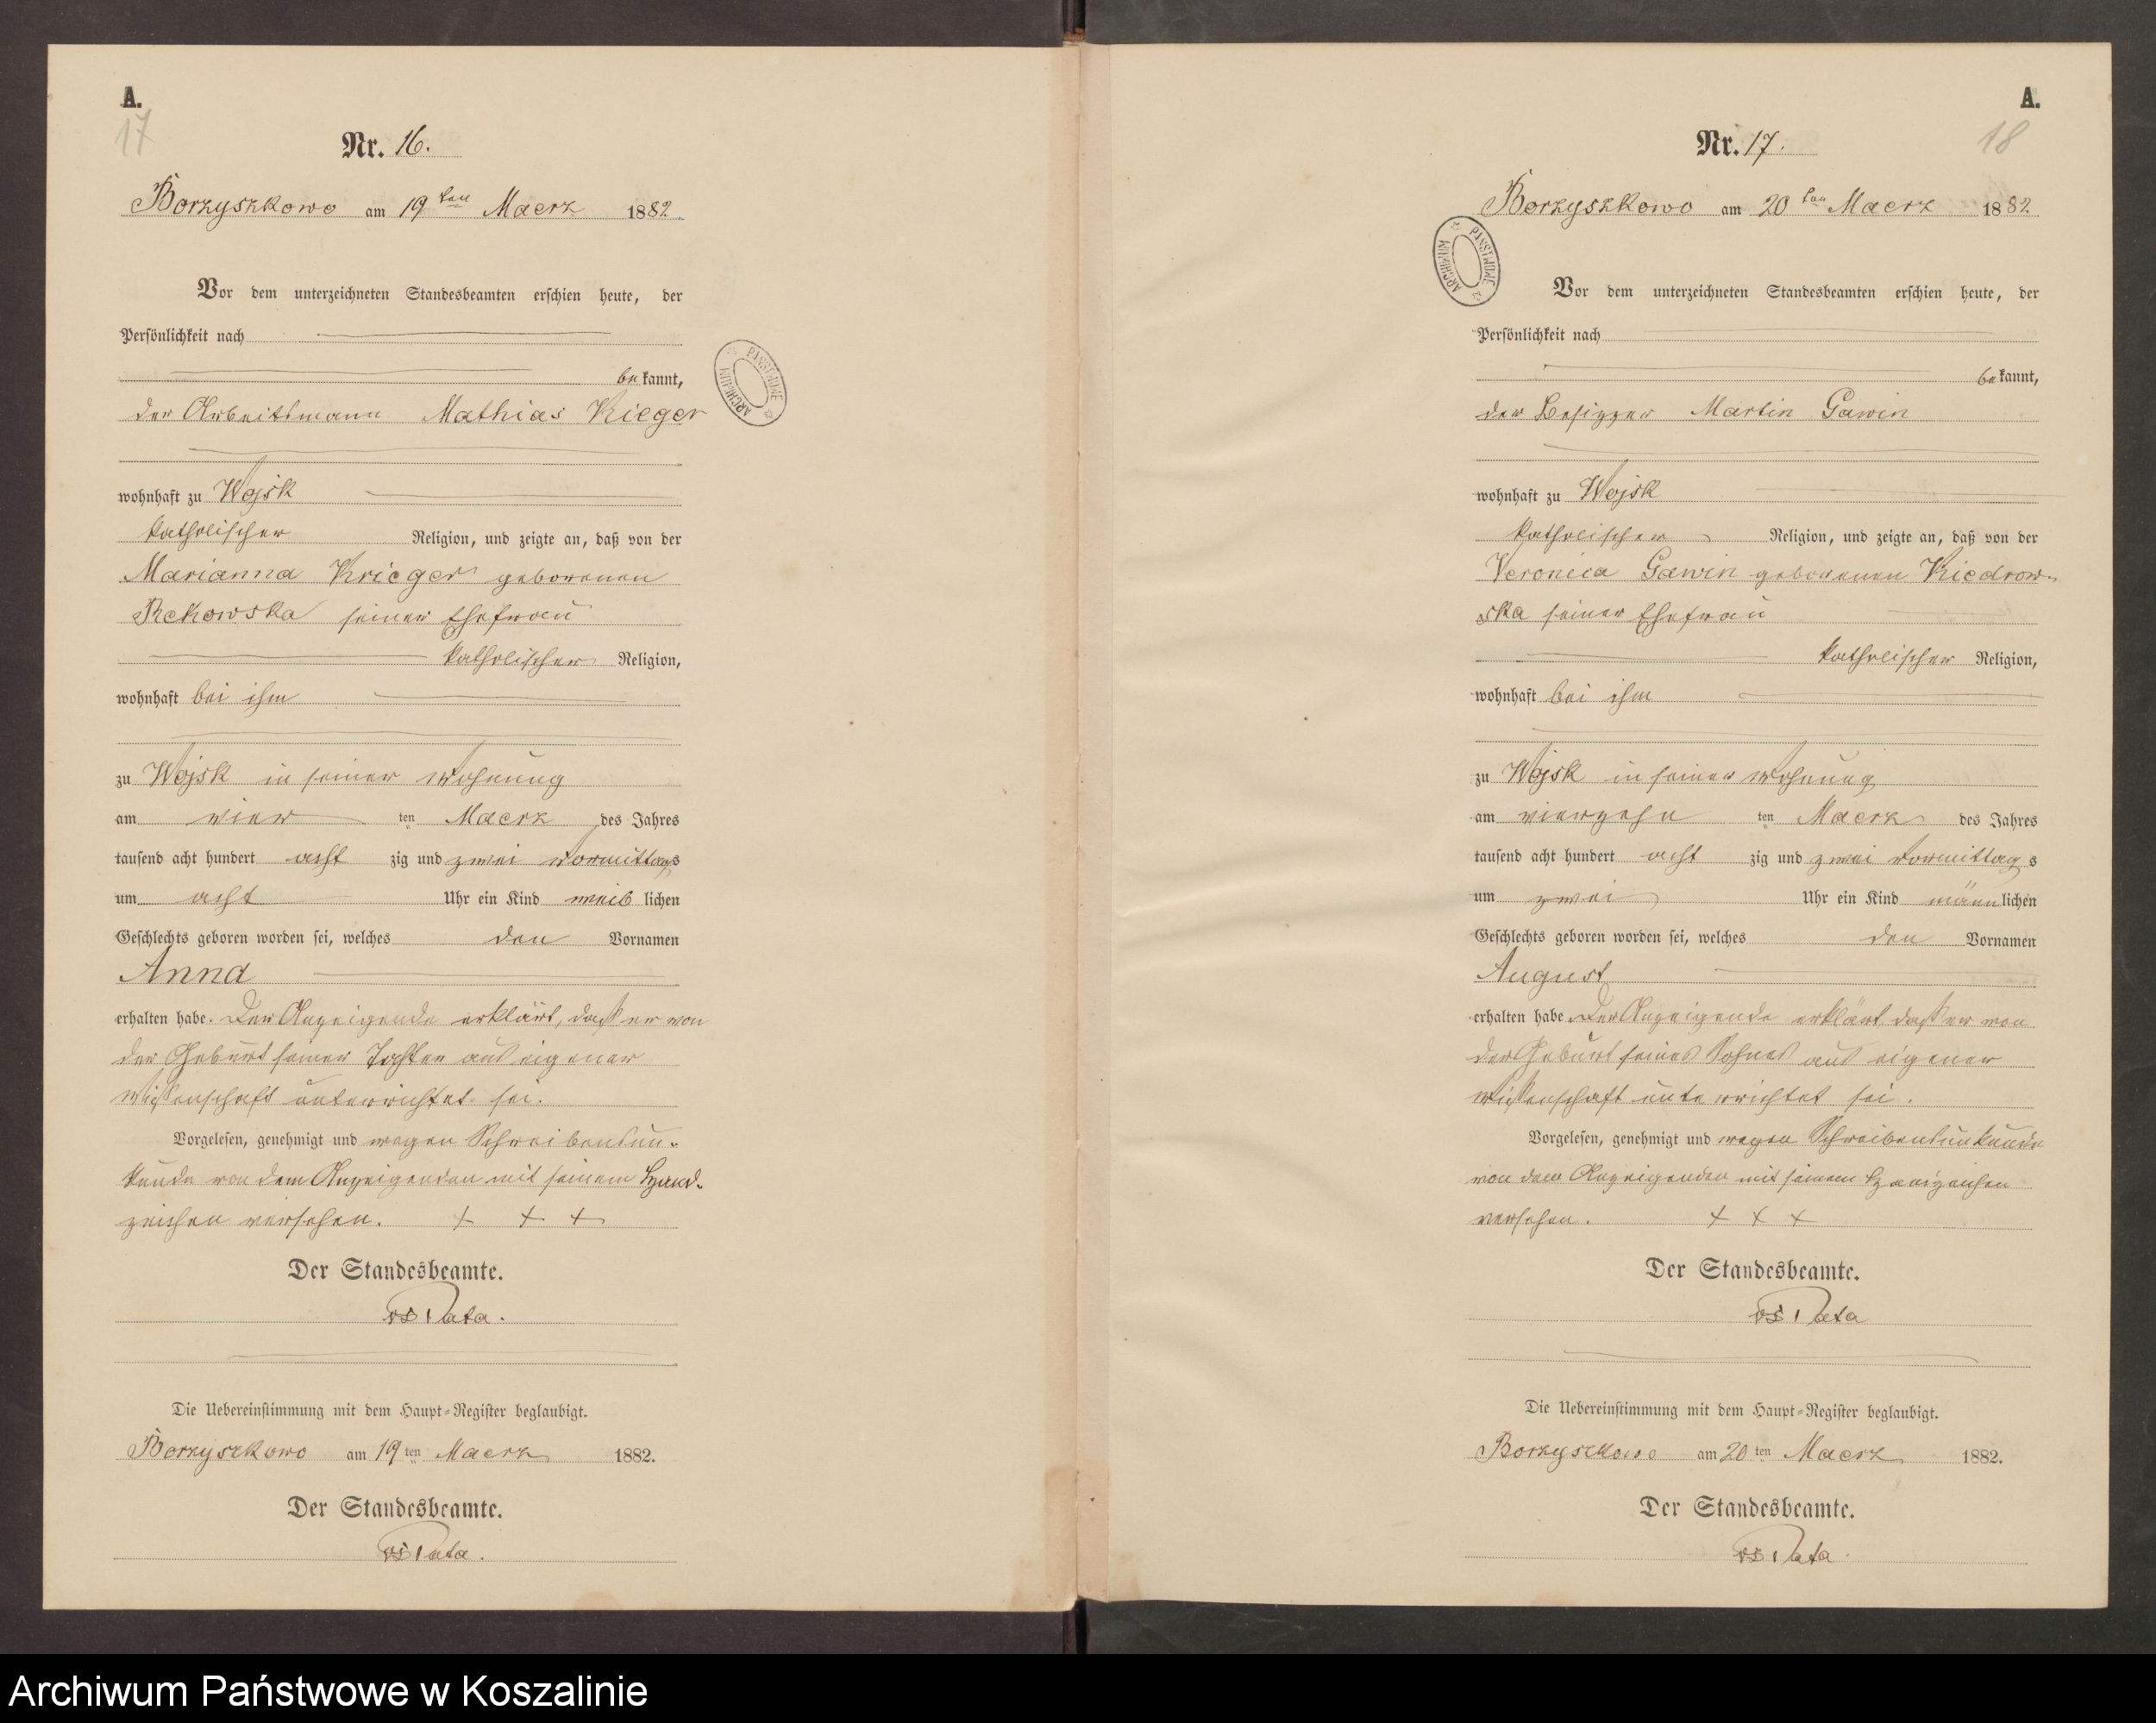 A.
17
Nr. 16.
Borzyszkowo am 19ten Maerz 1882.
Vor dem unterzeichneten Standesbeamten erschien heute, der
Persönlichkeit nach
bekannt,
der Arbeitsmann Mathias Krieger
wohnhaft zu Wojsk
katholischer Religion, und zeigte an, daß von der
Marianna Krieger geborenen
Rekowska seiner Ehefrau
katholischer Religion,
wohnhaft bei ihm
zu Wojsk in seiner Wohnung
am vier ten Maerz des Jahres
tausend acht hundert acht zig und zwei Vormittags
um acht Uhr ein Kind weiblichen
Geschlechts geboren worden sei, welches den Vornamen
Anna
erhalten habe. Der Anzeigende erklärt, daß er von
der Geburt seiner Tochter aus eigener
Wissenschaft unterrichtet sei.
Vorgelesen, genehmigt und wegen Schreibensun-
kunde von dem Anzeigenden mit seinem Hand-
zeichen versehen. + + +
Der Standesbeamte.
Pata.
Die Uebereinstimmung mit dem Haupt-Register beglaubigt.
Borzyszkowo am 19ten Maerz 1882.
Der Standesbeamte.
Pata.
A.
18
Nr. 17.
Borzyszkowo am 20ten Maerz 1882
Vor dem unterzeichneten Standesbeamten erschien heute, der
Persönlichkeit nach
bekannt,
der Besitzer Martin Gawin
wohnhaft zu Wojsk
katholischer Religion, und zeigte an, daß von der
Veronica Gawin geborenen Kiedrow-
ska seiner Ehefrau
katholischer Religion,
wohnhaft bei ihm
zu Wojsk in seiner Wohnung
am vierzehn ten Maerz des Jahres
tausend acht hundert acht zig und zwei Vormittags
um zwei Uhr ein Kind männlichen
Geschlechts geboren worden sei, welches den Vornamen
August
erhalten habe. Der Anzeigende erklärt daß er von
der Geburt seines Sohnes aus eigener
Wissenschaft unterrichtet sei.
Vorgelesen, genehmigt und wegen Schreibensunkunde
von dem Anzeigenden mit seinem
versehen. + + +
Der Standesbeamte.
Pata
Die Uebereinstimmung mit dem Haupt-Register beglaubigt.
Borzyszkowo am 20ten Maerz 1882.
Der Standesbeamte.
Pata.
ARCHIWUM PAŃSTWOWE
ARCHIWUM PAŃSTWOWE
Archiwum Państwowe w Koszalinie